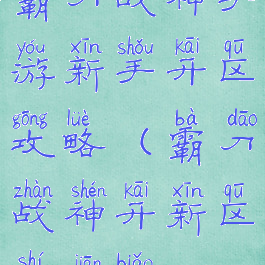 霸刀战神手
yóu xīn shǒu kāi qū
游新手开区
gōng lüè bà dāo
攻略（霸刀
zhàn shén kāi xīn qū
战神开新区
shí jiān biǎo